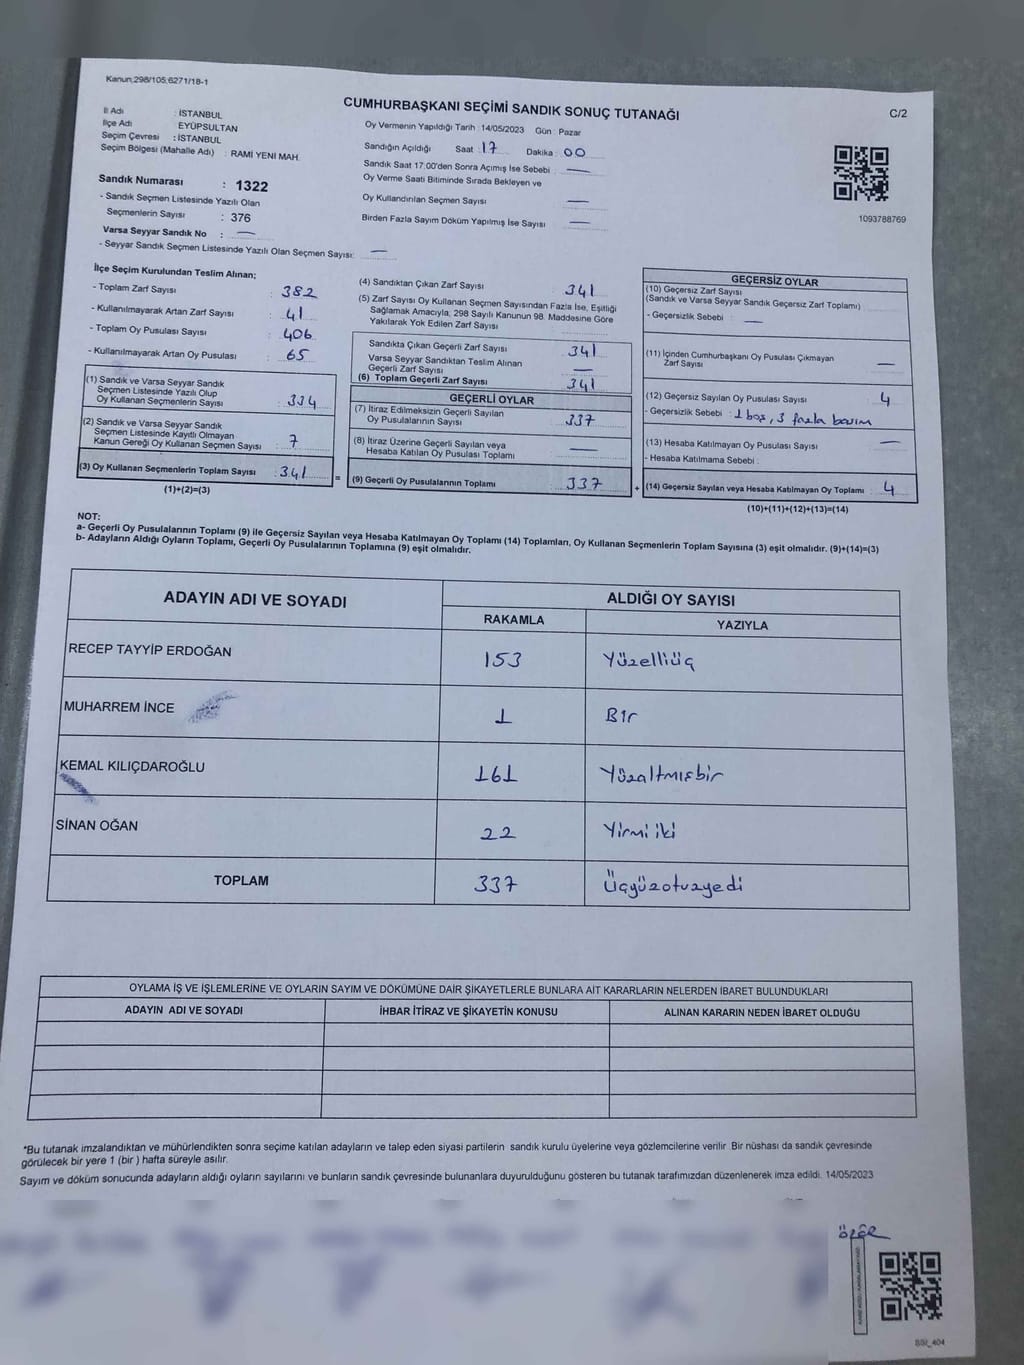 Kanun;298/105;6271/18-1
CUMHURBAŞKANI SEÇİMİ SANDIK SONUÇ TUTANAĞI
C/2
İl Adı : İSTANBUL
İlçe Adı : EYÜPSULTAN
Seçim Çevresi : İSTANBUL
Seçim Bölgesi (Mahalle Adı) : RAMİ YENİ MAH.
Sandık Numarası : 1322
- Sandık Seçmen Listesinde Yazılı Olan
Seçmenlerin Sayısı : 376
Varsa Seyyar Sandık No : —
- Seyyar Sandık Seçmen Listesinde Yazılı Olan Seçmen Sayısı: —
Oy Vermenin Yapıldığı Tarih : 14/05/2023 Gün : Pazar
Sandığın Açıldığı Saat : 17 Dakika : 00
Sandık Saat 17:00'den Sonra Açımış İse Sebebi : —
Oy Verme Saati Bitiminde Sırada Bekleyen ve
Oy Kullandırılan Seçmen Sayısı —
Birden Fazla Sayım Döküm Yapılmış İse Sayısı —
1093788769
İlçe Seçim Kurulundan Teslim Alınan;
- Toplam Zarf Sayısı : 382
- Kullanılmayarak Artan Zarf Sayısı : 41
- Toplam Oy Pusulası Sayısı : 406
- Kullanılmayarak Artan Oy Pusulası : 65
(1) Sandık ve Varsa Seyyar Sandık
Seçmen Listesinde Yazılı Olup
Oy Kullanan Seçmenlerin Sayısı : 334
(2) Sandık ve Varsa Seyyar Sandık
Seçmen Listesinde Kayıtlı Olmayan
Kanun Gereği Oy Kullanan Seçmen Sayısı : 7
(3) Oy Kullanan Seçmenlerin Toplam Sayısı : 341
(1)+(2)=(3)
=
(4) Sandıktan Çıkan Zarf Sayısı 341
(5) Zarf Sayısı Oy Kullanan Seçmen Sayısından Fazla İse, Eşitliği
Sağlamak Amacıyla, 298 Sayılı Kanunun 98. Maddesine Göre
Yakılarak Yok Edilen Zarf Sayısı
Sandıkta Çıkan Geçerli Zarf Sayısı 341
Varsa Seyyar Sandıktan Teslim Alınan
Geçerli Zarf Sayısı —
(6) Toplam Geçerli Zarf Sayısı 341
GEÇERLİ OYLAR
(7) İtiraz Edilmeksizin Geçerli Sayılan
Oy Pusulalarının Sayısı 337
(8) İtiraz Üzerine Geçerli Sayılan veya
Hesaba Katılan Oy Pusulası Toplamı —
(9) Geçerli Oy Pusulalarının Toplamı 337
+
GEÇERSİZ OYLAR
(10) Geçersiz Zarf Sayısı
(Sandık ve Varsa Seyyar Sandık Geçersiz Zarf Toplamı)
- Geçersizlik Sebebi : —
(11) İçinden Cumhurbaşkanı Oy Pusulası Çıkmayan
Zarf Sayısı —
(12) Geçersiz Sayılan Oy Pusulası Sayısı 4
- Geçersizlik Sebebi : 1 boş, 3 fazla basım
(13) Hesaba Katılmayan Oy Pusulası Sayısı —
- Hesaba Katılmama Sebebi :
(14) Geçersiz Sayılan veya Hesaba Katılmayan Oy Toplamı : 4
(10)+(11)+(12)+(13)=(14)
NOT:
a- Geçerli Oy Pusulalarının Toplamı (9) ile Geçersiz Sayılan veya Hesaba Katılmayan Oy Toplamı (14) Toplamları, Oy Kullanan Seçmenlerin Toplam Sayısına (3) eşit olmalıdır. (9)+(14)=(3)
b- Adayların Aldığı Oyların Toplamı, Geçerli Oy Pusulalarının Toplamına (9) eşit olmalıdır.
ADAYIN ADI VE SOYADI
ALDIĞI OY SAYISI
RAKAMLA YAZIYLA
RECEP TAYYİP ERDOĞAN 153 Yüzelliüç
MUHARREM İNCE 1 Bir
KEMAL KILIÇDAROĞLU 161 Yüzaltmışbir
SİNAN OĞAN 22 Yirmi iki
TOPLAM 337 Üçyüzotuzyedi
OYLAMA İŞ VE İŞLEMLERİNE VE OYLARIN SAYIM VE DÖKÜMÜNE DAİR ŞİKAYETLERLE BUNLARA AİT KARARLARIN NELERDEN İBARET BULUNDUKLARI
ADAYIN ADI VE SOYADI İHBAR İTİRAZ VE ŞİKAYETİN KONUSU ALINAN KARARIN NEDEN İBARET OLDUĞU
*Bu tutanak imzalandıktan ve mühürlendikten sonra seçime katılan adayların ve talep eden siyasi partilerin sandık kurulu üyelerine veya gözlemcilerine verilir. Bir nüshası da sandık çevresinde
görülecek bir yere 1 (bir ) hafta süreyle asılır.
Sayım ve döküm sonucunda adayların aldığı oyların sayılarını ve bunların sandık çevresinde bulunanlara duyurulduğunu gösteren bu tutanak tarafımızdan düzenlenerek imza edildi. 14/05/2023